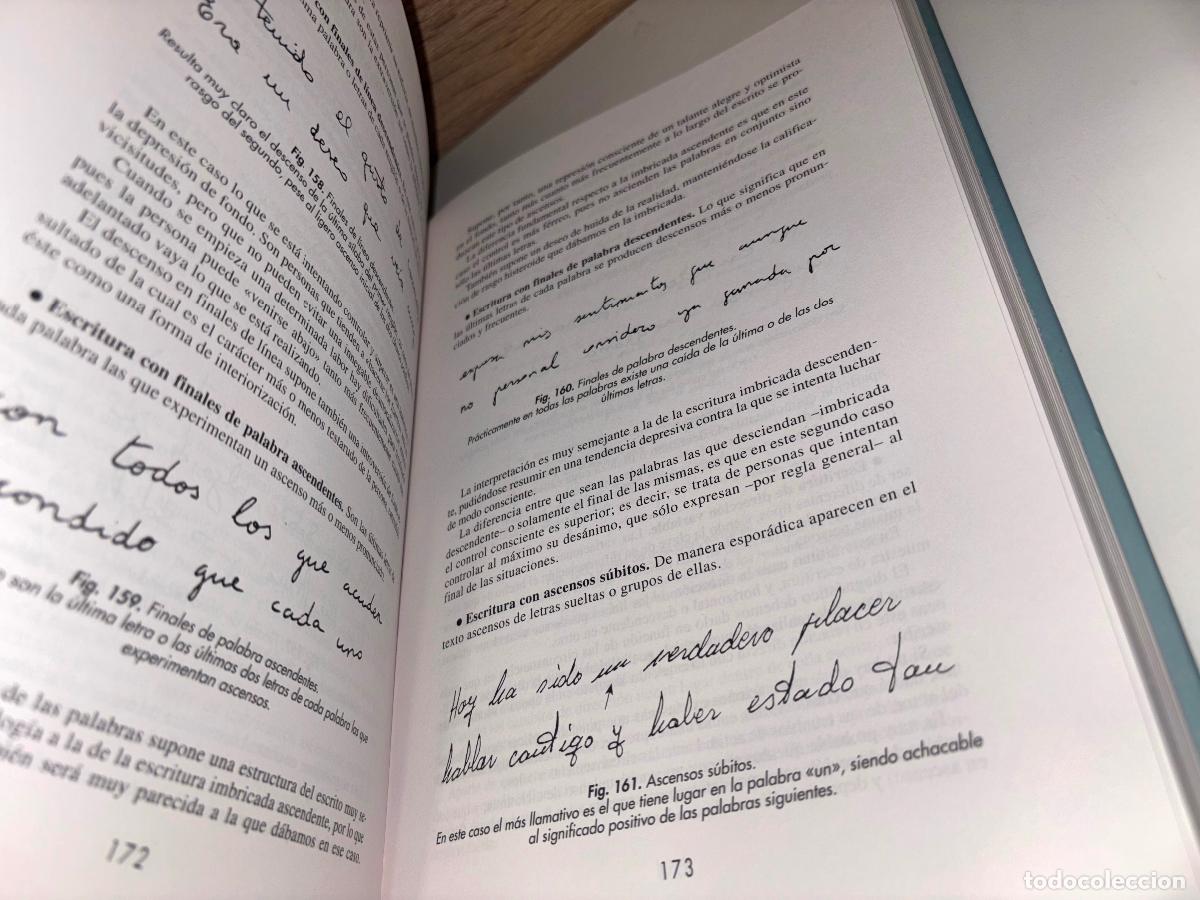 tenido el gusto de
Era un deseo que
Fig. 158. Finales de línea descendentes.
Resulta muy claro el descenso de la última sílaba del
rasgo del segundo, pese al ligero ascenso inicial
En este caso lo que se está intentando controlar y superar es
la depresión de fondo. Son personas que tienden a
vicisitudes, pero que no pueden evitar una innegable
Cuando se empieza una determinada labor hay dificultades,
pues la persona puede «venirse abajo» tanto más frecuentemente
adelantado vaya lo que se está realizando.
El descenso en finales de línea supone también una
sultado de la cual es el carácter más o menos testarudo de la persona,
éste como una forma de interiorización.
● Escritura con finales de palabra ascendentes. Son las últimas letras de
cada palabra las que experimentan un ascenso más o menos pronunciado.
con todos los que acuden
condido que cada uno
Fig. 159. Finales de palabra ascendentes.
son la última letra o las últimas dos letras de cada palabra las que
experimentan ascensos.
de las palabras supone una estructura del escrito muy se-
logía a la de la escritura imbricada ascendente, por lo que
será muy parecida a la que dábamos en ese caso.
172
Supone, por tanto, una represión consciente de un talante alegre y optimista
en el fondo, tanto más cuanto más frecuentemente a lo largo del escrito se pro-
duzcan este tipo de ascensos.
La diferencia fundamental respecto a la imbricada ascendente es que en este
caso el control es más férreo, pues no ascienden las palabras en conjunto sino
sólo las últimas letras.
También supone un deseo de huida de la realidad, manteniéndose la califica-
ción de rasgo histeroide que dábamos en la imbricada.
● Escritura con finales de palabra descendentes. Lo que significa que en
las últimas letras de cada palabra se producen descensos más o menos pronun-
ciados y frecuentes.
expresa mis sentimientos que aunque
no personal considero ya ganada por
Fig. 160. Finales de palabra descendentes.
Prácticamente en todas las palabras existe una caída de la última o de las dos
últimas letras.
La interpretación es muy semejante a la de la escritura imbricada descenden-
te, pudiéndose resumir en una tendencia depresiva contra la que se intenta luchar
de modo consciente.
La diferencia entre que sean las palabras las que desciendan –imbricada
descendente– o solamente el final de las mismas, es que en este segundo caso
el control consciente es superior; es decir, se trata de personas que intentan
controlar al máximo su desánimo, que sólo expresan –por regla general– al
final de las situaciones.
● Escritura con ascensos súbitos. De manera esporádica aparecen en el
texto ascensos de letras sueltas o grupos de ellas.
Hoy ha sido un verdadero placer
hablar contigo y haber estado tan
Fig. 161. Ascensos súbitos.
En este caso el más llamativo es el que tiene lugar en la palabra «un», siendo achacable
al significado positivo de las palabras siguientes.
173
todocoleccion